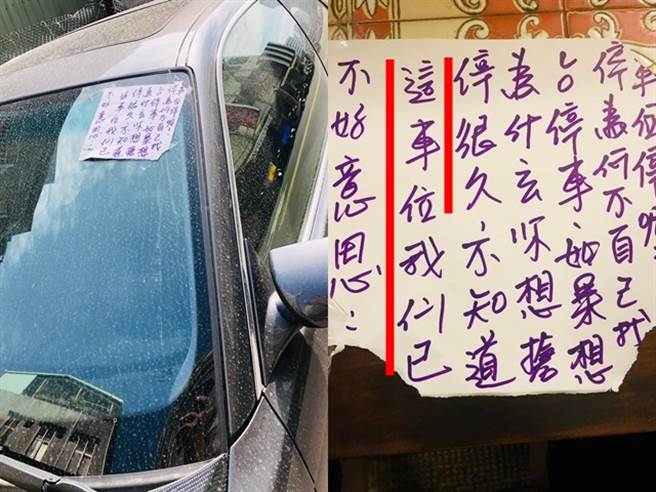 不好意思：
這車位我们已
停很久不知道
為什么你想搶
占停車，如果想
停為何不自己找
車位停呢？